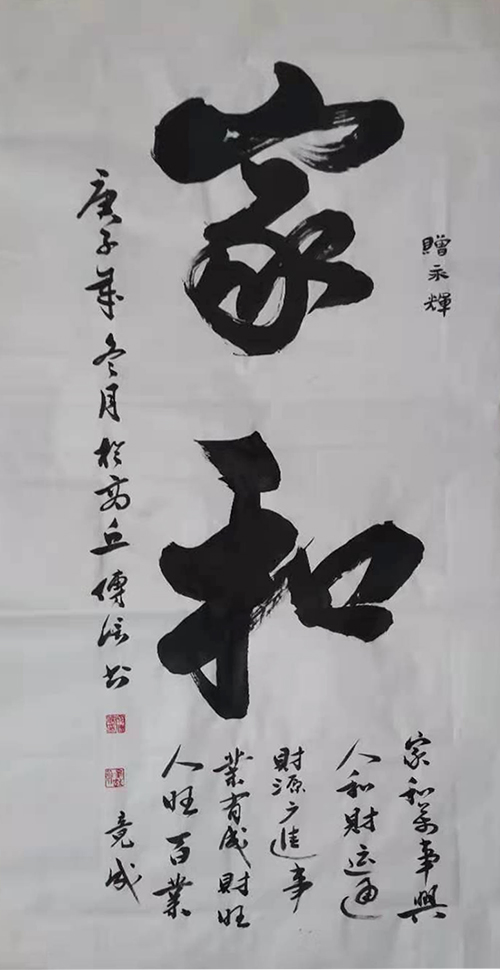 贈永輝
家和
家和萬事興
人和財运通
財源广進事
業有成財旺
人旺百業
竟成
庚子年冬月於商丘傅书